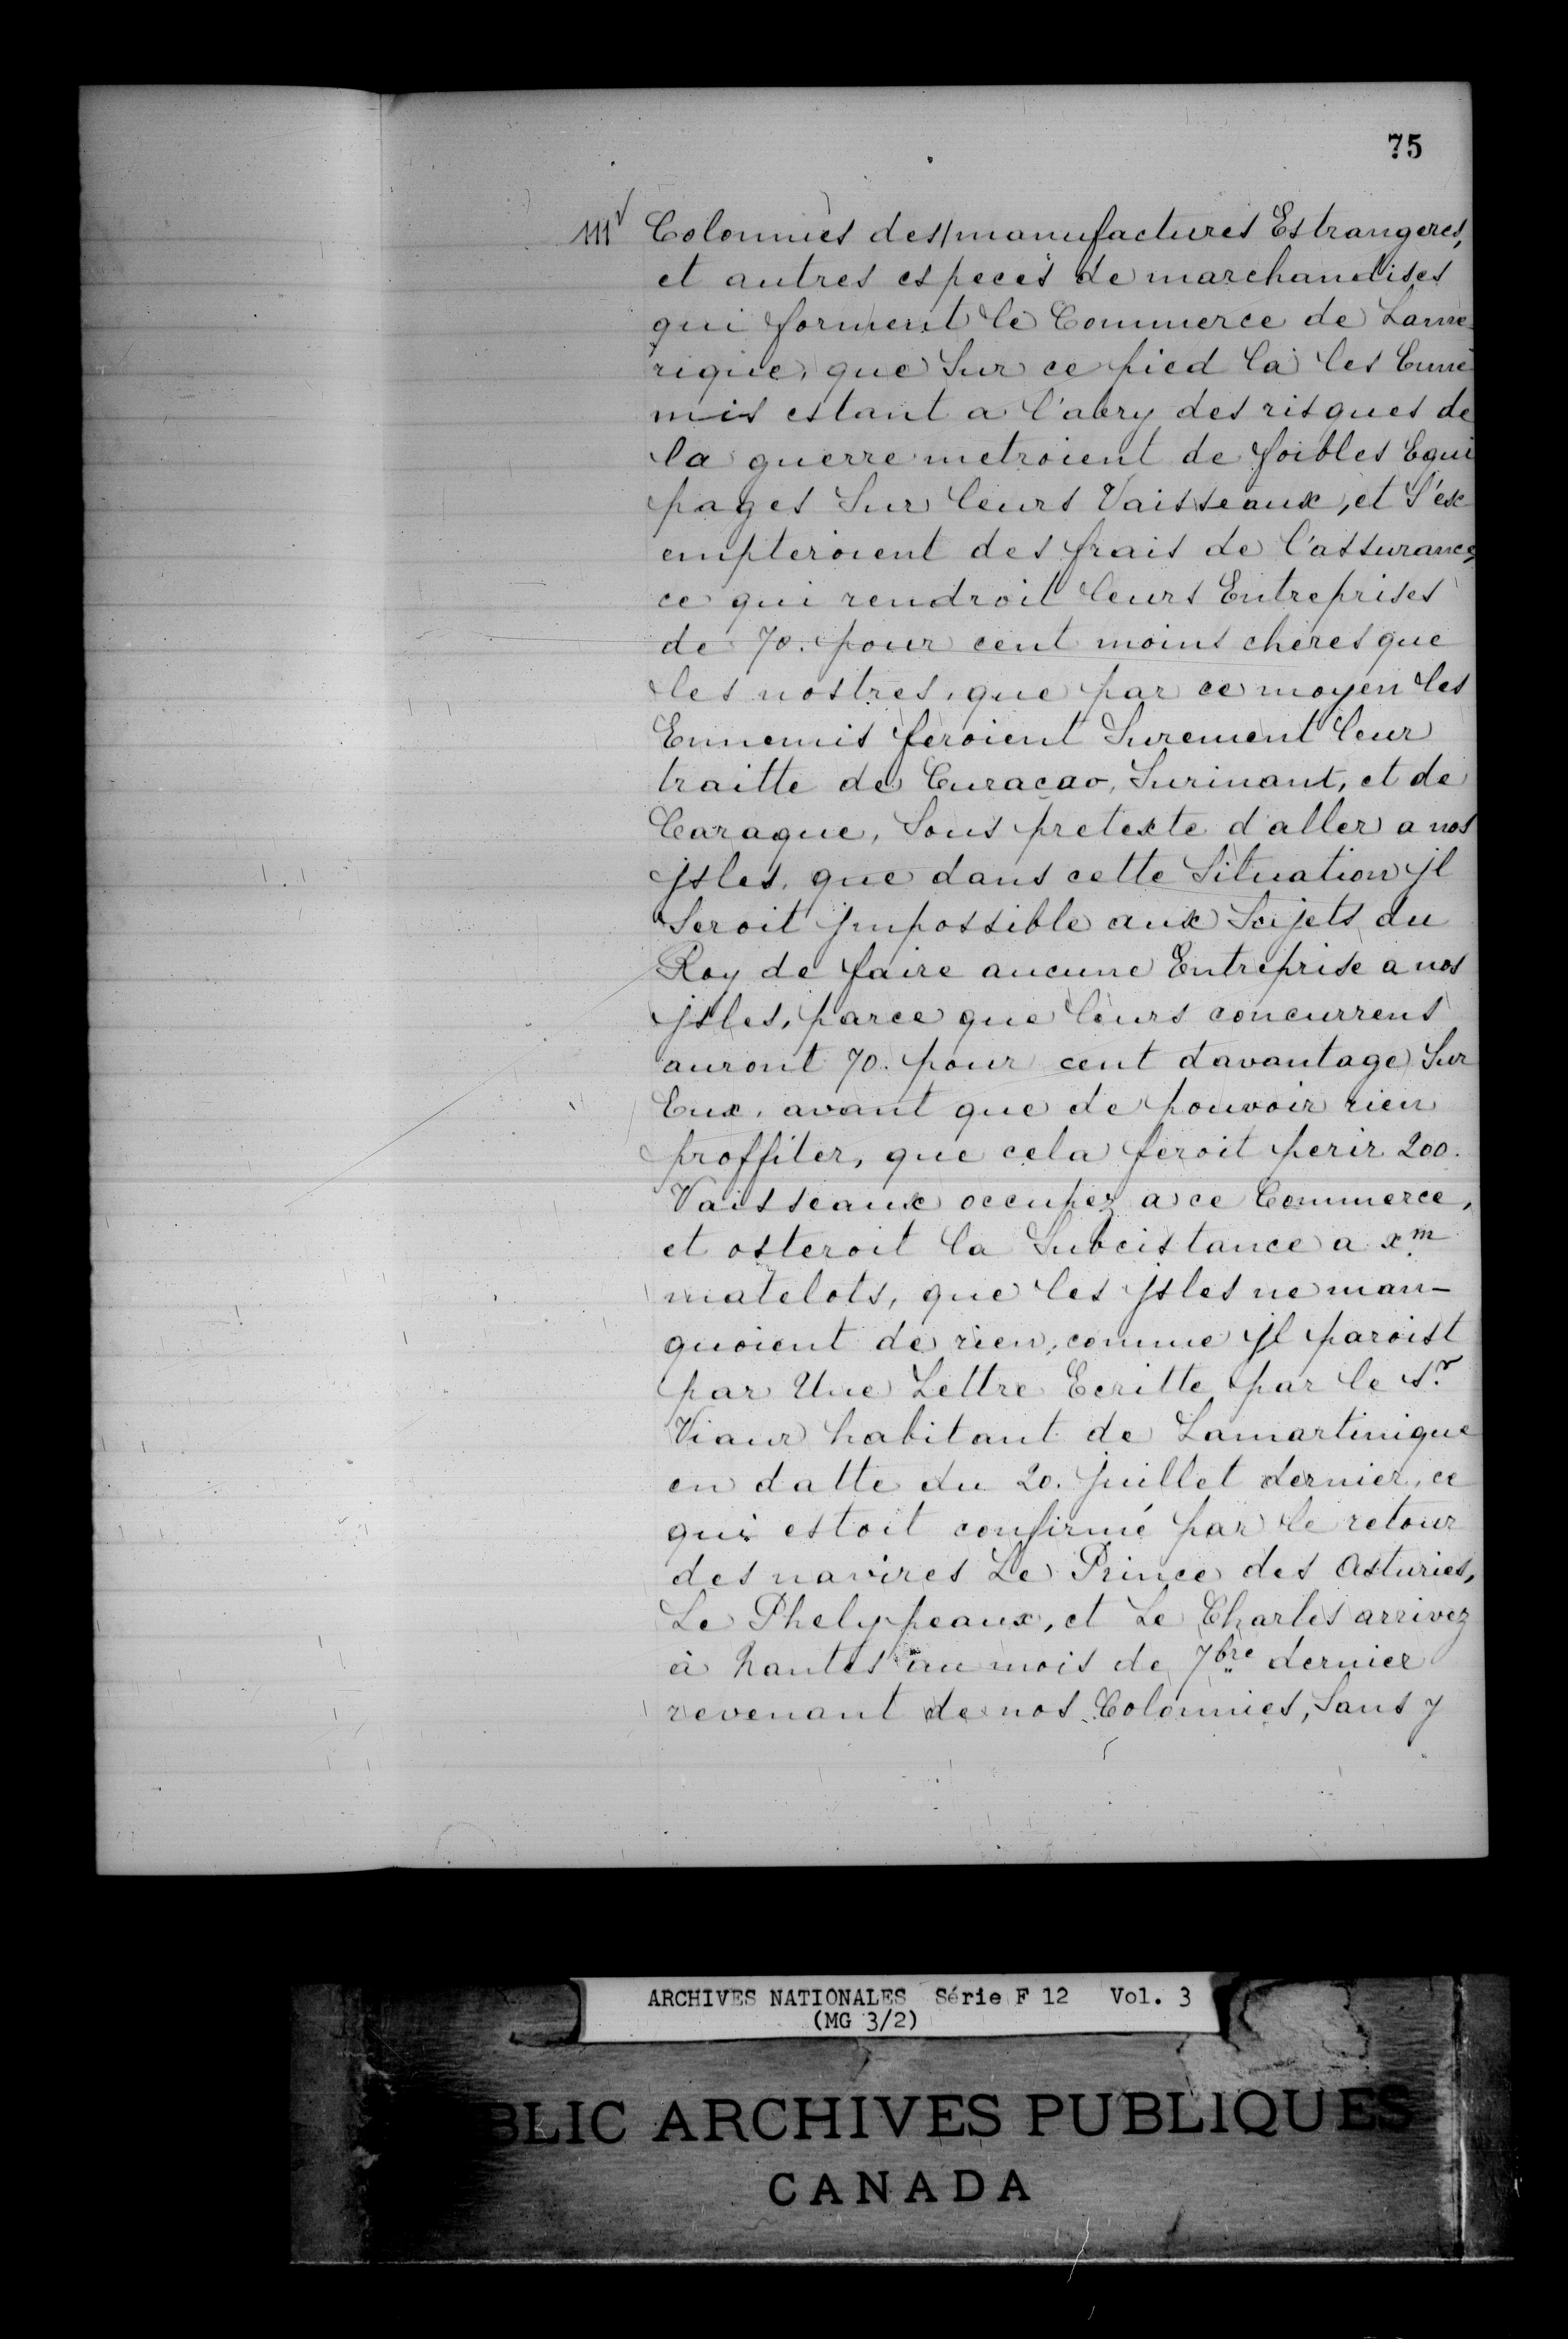 75
111v Colonnies des/manufactures Estrangeres,
et autres especes de marchandises
qui forment le Commerce de Lame-
rique, que Sur ce pied la les Enne
mis estant a l'abry des risques de
la guerre metroient de foibles Equi
pages Sur leurs Vaisseaux, et S'ex
empteroient des frais de l'assurance,
ce qui rendroit leurs Entreprises
de 70. pour cent moins cheres que
les nostres, que par ce moyen les
Ennemis feroient Surement leur
traitte de Curaçao, Surinant, et de
Caraque, Sous pretexte d'aller a nos
jsles, que dans cette Situation jl
Seroit jmpossible aux Sujets du
Roy de faire aucune Entreprise a nos
jsles, parce que leurs concurrens
auront 70. pour cent davantage Sur
Eux, avant que de pouvoir rien
proffiter, que cela feroit perir 200.
Vaisseaux occupez a ce Commerce,
et osteroit la Subcistance a xm.
matelots, que les jsles ne man-
quoient de rien, comme jl paroist
par Une Lettre Ecritte par le Sr.
Viaur habitant de Lamartinique
en datte du 20. juillet dernier, ce
qui estoit confirmé par le retour
des navires Le Prince des Asturies,
Le Phelypeaux, et Le Charles arrivez
à Nantes au mois de 7bre dernier
revenant de nos Colonnies, Sans y
ARCHIVES NATIONALES Série F 12 Vol. 3
(MG 3/2)
BLIC ARCHIVES PUBLIQUES
CANADA